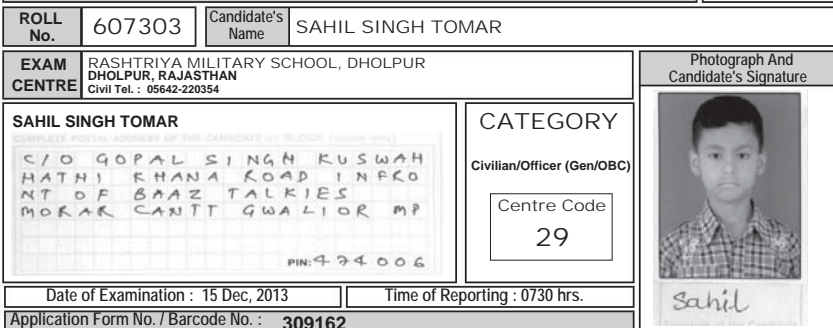 ROLL No. 607303 Candidate's Name SAHIL SINGH TOMAR
EXAM CENTRE
RASHTRIYA MILITARY SCHOOL, DHOLPUR
DHOLPUR, RAJASTHAN
Civil Tel. : 05642-220354
Photograph And
Candidate's Signature
SAHIL SINGH TOMAR
COMPLETE POSTAL ADDRESS OF THE CANDIDATE
C/O GOPAL SINGH KUSWAH
HATHI KHANA ROAD INFRO
NT OF BAAZ TALKIES
MORAR CANTT GWALIOR MP
PIN: 474006
CATEGORY
Civilian/Officer (Gen/OBC)
Centre Code
29
Sahil
Date of Examination : 15 Dec, 2013 Time of Reporting : 0730 hrs.
Application Form No. / Barcode No. : 309162